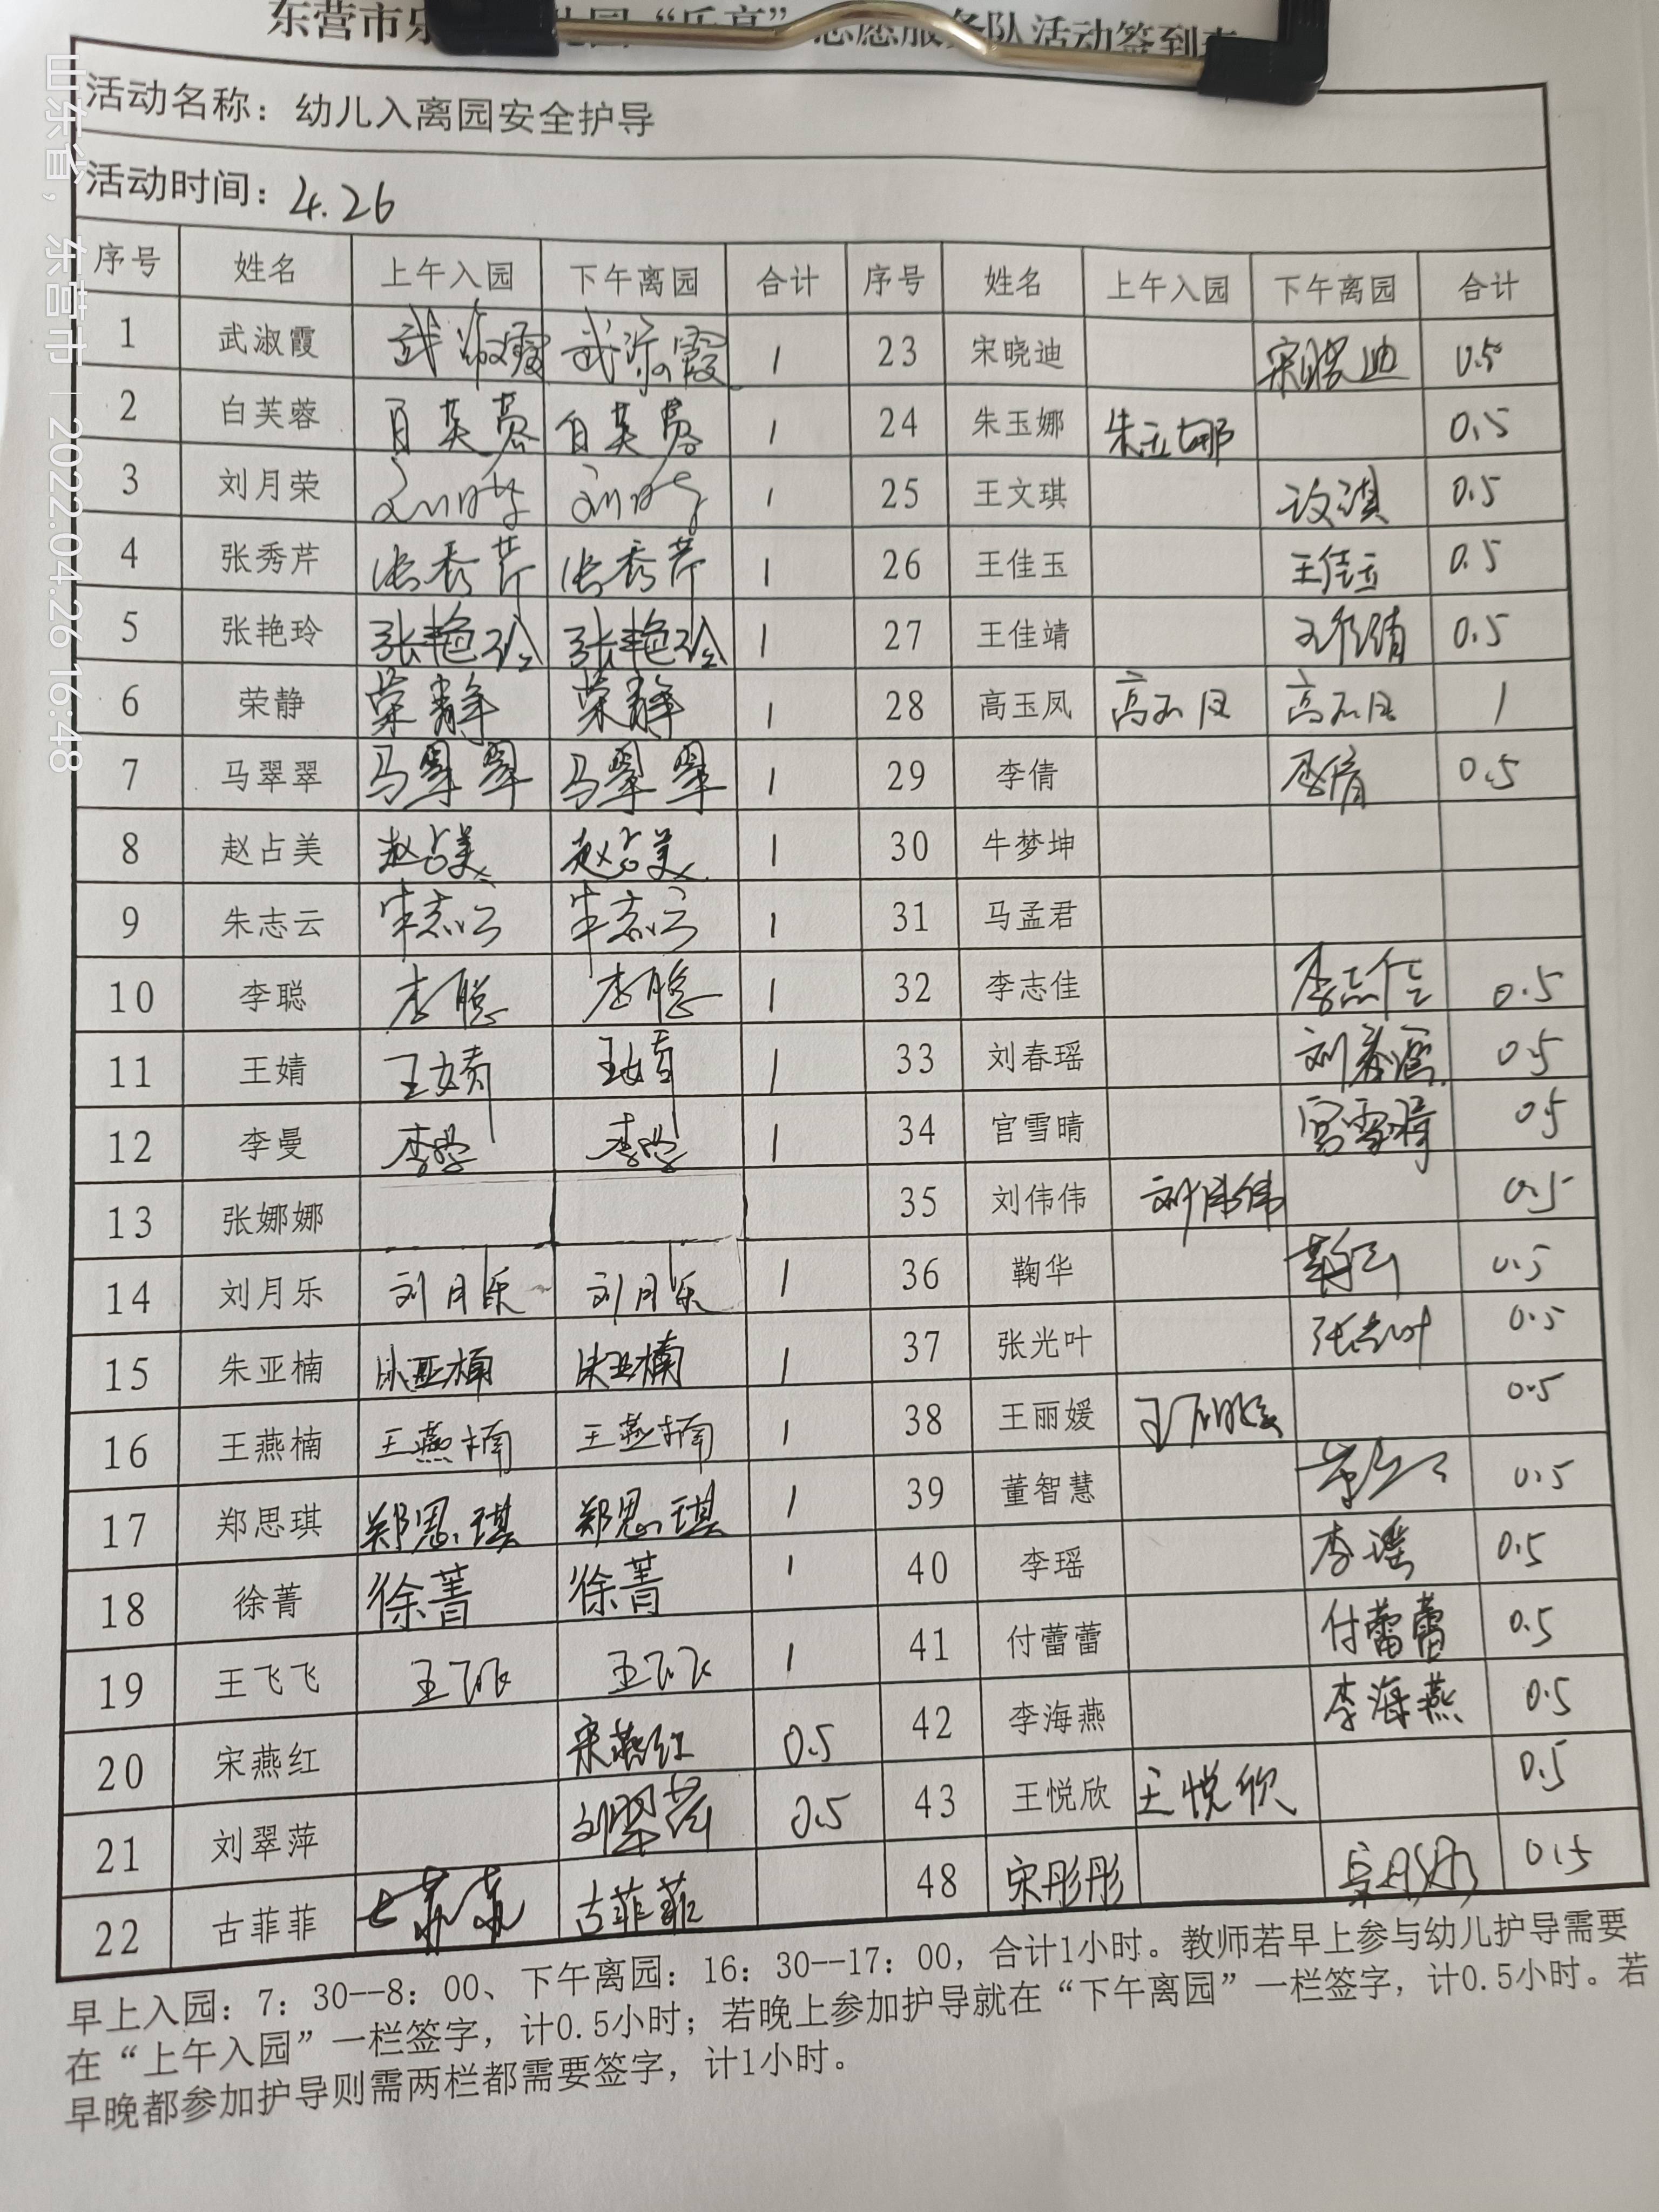 东营市乐 “乐享”志愿服务队活动签到表
活动名称：幼儿入离园安全护导
活动时间：4.26
序号 姓名 上午入园 下午离园 合计 序号 姓名 上午入园 下午离园 合计
1 武淑霞 武淑霞 武淑霞 1 23 宋晓迪 宋晓迪 0.5
2 白芙蓉 白芙蓉 白芙蓉 1 24 朱玉娜 朱玉娜 0.5
3 刘月荣 刘月荣 刘月荣 1 25 王文琪 王文琪 0.5
4 张秀芹 张秀芹 张秀芹 1 26 王佳玉 王佳玉 0.5
5 张艳玲 张艳玲 张艳玲 1 27 王佳靖 王佳靖 0.5
6 荣静 荣静 荣静 1 28 高玉凤 高玉凤 高玉凤 1
7 马翠翠 马翠翠 马翠翠 1 29 李倩 李倩 0.5
8 赵占美 赵占美 赵占美 1 30 牛梦坤
9 朱志云 朱志云 朱志云 1 31 马孟君
10 李聪 李聪 李聪 1 32 李志佳 李志佳 0.5
11 王婧 王婧 王婧 1 33 刘春瑶 刘春瑶 0.5
12 李曼 李曼 李曼 1 34 官雪晴 官雪晴 0.5
13 张娜娜 35 刘伟伟 刘伟伟 0.5
14 刘月乐 刘月乐 刘月乐 1 36 鞠华 鞠华 0.5
15 朱亚楠 朱亚楠 朱亚楠 1 37 张光叶 张光叶 0.5
16 王燕楠 王燕楠 王燕楠 1 38 王丽媛 王丽媛 0.5
17 郑思琪 郑思琪 郑思琪 1 39 董智慧 0.5
18 徐菁 徐菁 徐菁 1 40 李瑶 李瑶 0.5
19 王飞飞 王飞飞 王飞飞 1 41 付蕾蕾 付蕾蕾 0.5
20 宋燕红 宋燕红 0.5 42 李海燕 李海燕 0.5
21 刘翠萍 刘翠萍 0.5 43 王悦欣 王悦欣 0.5
22 古菲菲 古菲菲 古菲菲 48 宋彤彤 宋彤彤 0.5
早上入园：7：30--8：00、下午离园：16：30--17：00，合计1小时。教师若早上参与幼儿护导需要
在“上午入园”一栏签字，计0.5小时；若晚上参加护导就在“下午离园”一栏签字，计0.5小时。若
早晚都参加护导则需两栏都需要签字，计1小时。
山东省，东营市 | 2022.04.26 16:48